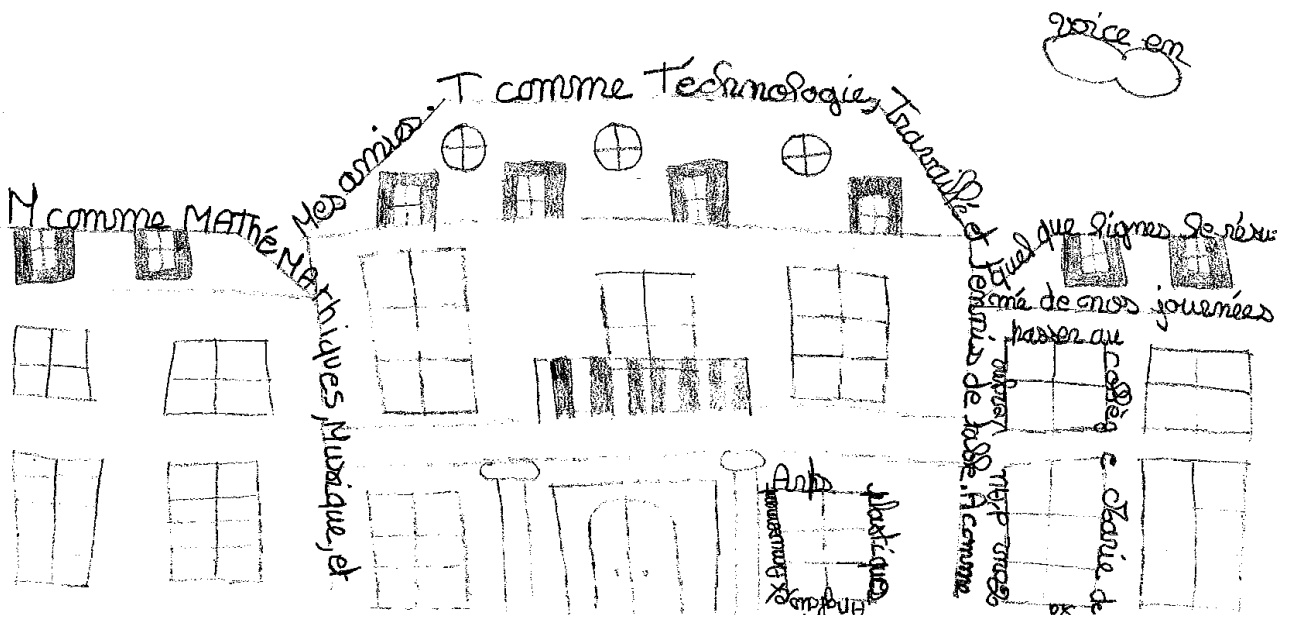 M comme MAThéMAthiques, Musique, et
Mes amies. T comme Téchnologie, Travaillé et Tennis de table. A comme
Arts
plastiques
Anglais
Amusement
voice en
quel que lignes le résu-
mé de nos journées
passer au
collèg e Marie de